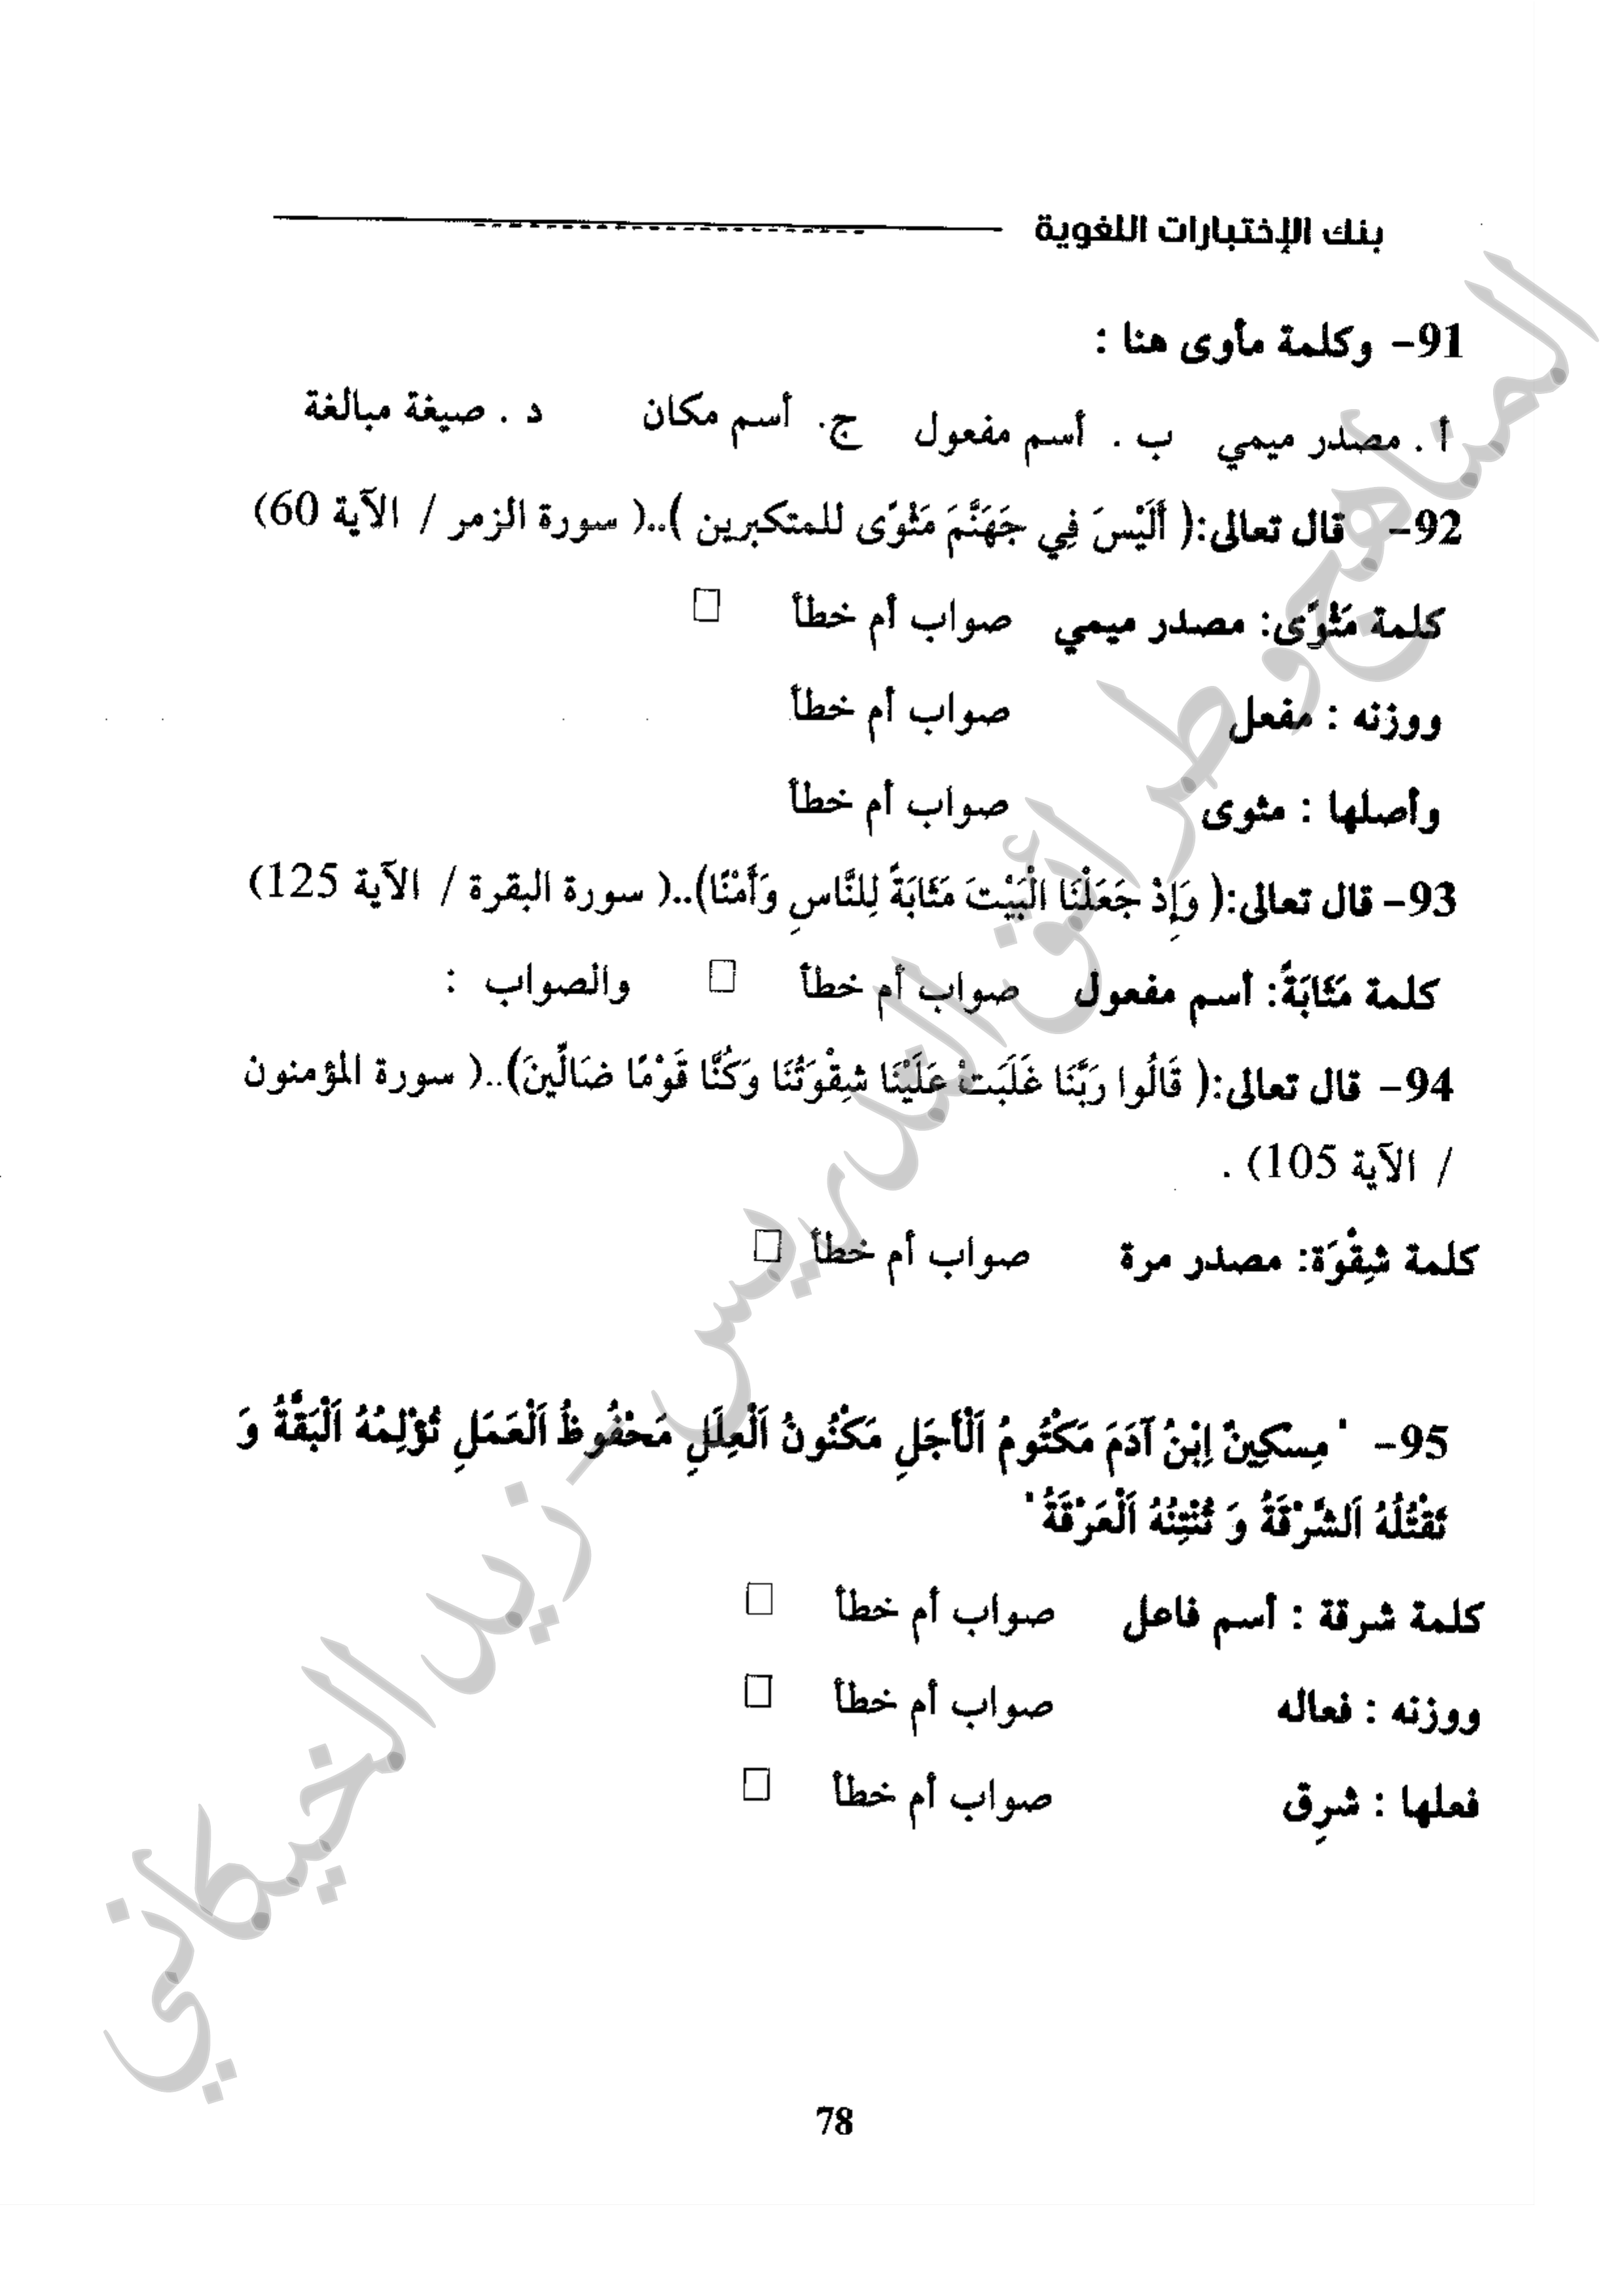 بنك الإختبارات اللغوية
91- وكلمة مأوى هنا :
أ . مصدر ميمي ب . أسم مفعول ج. أسم مكان د . صيغة مبالغة
92- قال تعالى:( أَلَيْسَ فِي جَهَنَّمَ مَثْوًى للمتكبرين )..( سورة الزمر / الآية 60)
كلمة مَثْوًى: مصدر ميمي صواب أم خطأ □
ووزنه : مفعل صواب أم خطأ
وأصلها : مثوى صواب أم خطأ
93- قال تعالى:( وَإِذْ جَعَلْنَا الْبَيْتَ مَثَابَةً لِلنَّاسِ وَأَمْنًا)..( سورة البقرة / الآية 125)
كلمة مَثَابَةً: أسم مفعول صواب أم خطأ □ والصواب :
94- قال تعالى:( قَالُوا رَبَّنَا غَلَبَتْ عَلَيْنَا شِقْوَتُنَا وَكُنَّا قَوْمًا ضَالِّينَ)..( سورة المؤمنون
/ الآية 105) .
كلمة شِقْوَة: مصدر مرة صواب أم خطأ □
95- " مِسكِينٌ اِبْنُ آدَمَ مَكْتُومُ اَلْأَجَلِ مَكْنُونُ اَلْعِلَلِ مَحْفُوظُ اَلْعَمَلِ تُؤْلِمُهُ اَلْبَقَّةُ وَ
تَقْتُلُهُ اَلشَّرْقَةُ وَ تُنْتِنُهُ اَلْعَرْقَةُ "
كلمة شرقة : أسم فاعل صواب أم خطأ □
ووزنه : فعاله صواب أم خطأ □
فعلها : شرِق صواب أم خطأ □
78
المناهج وطرائق التدريس - زيد الخيكاني